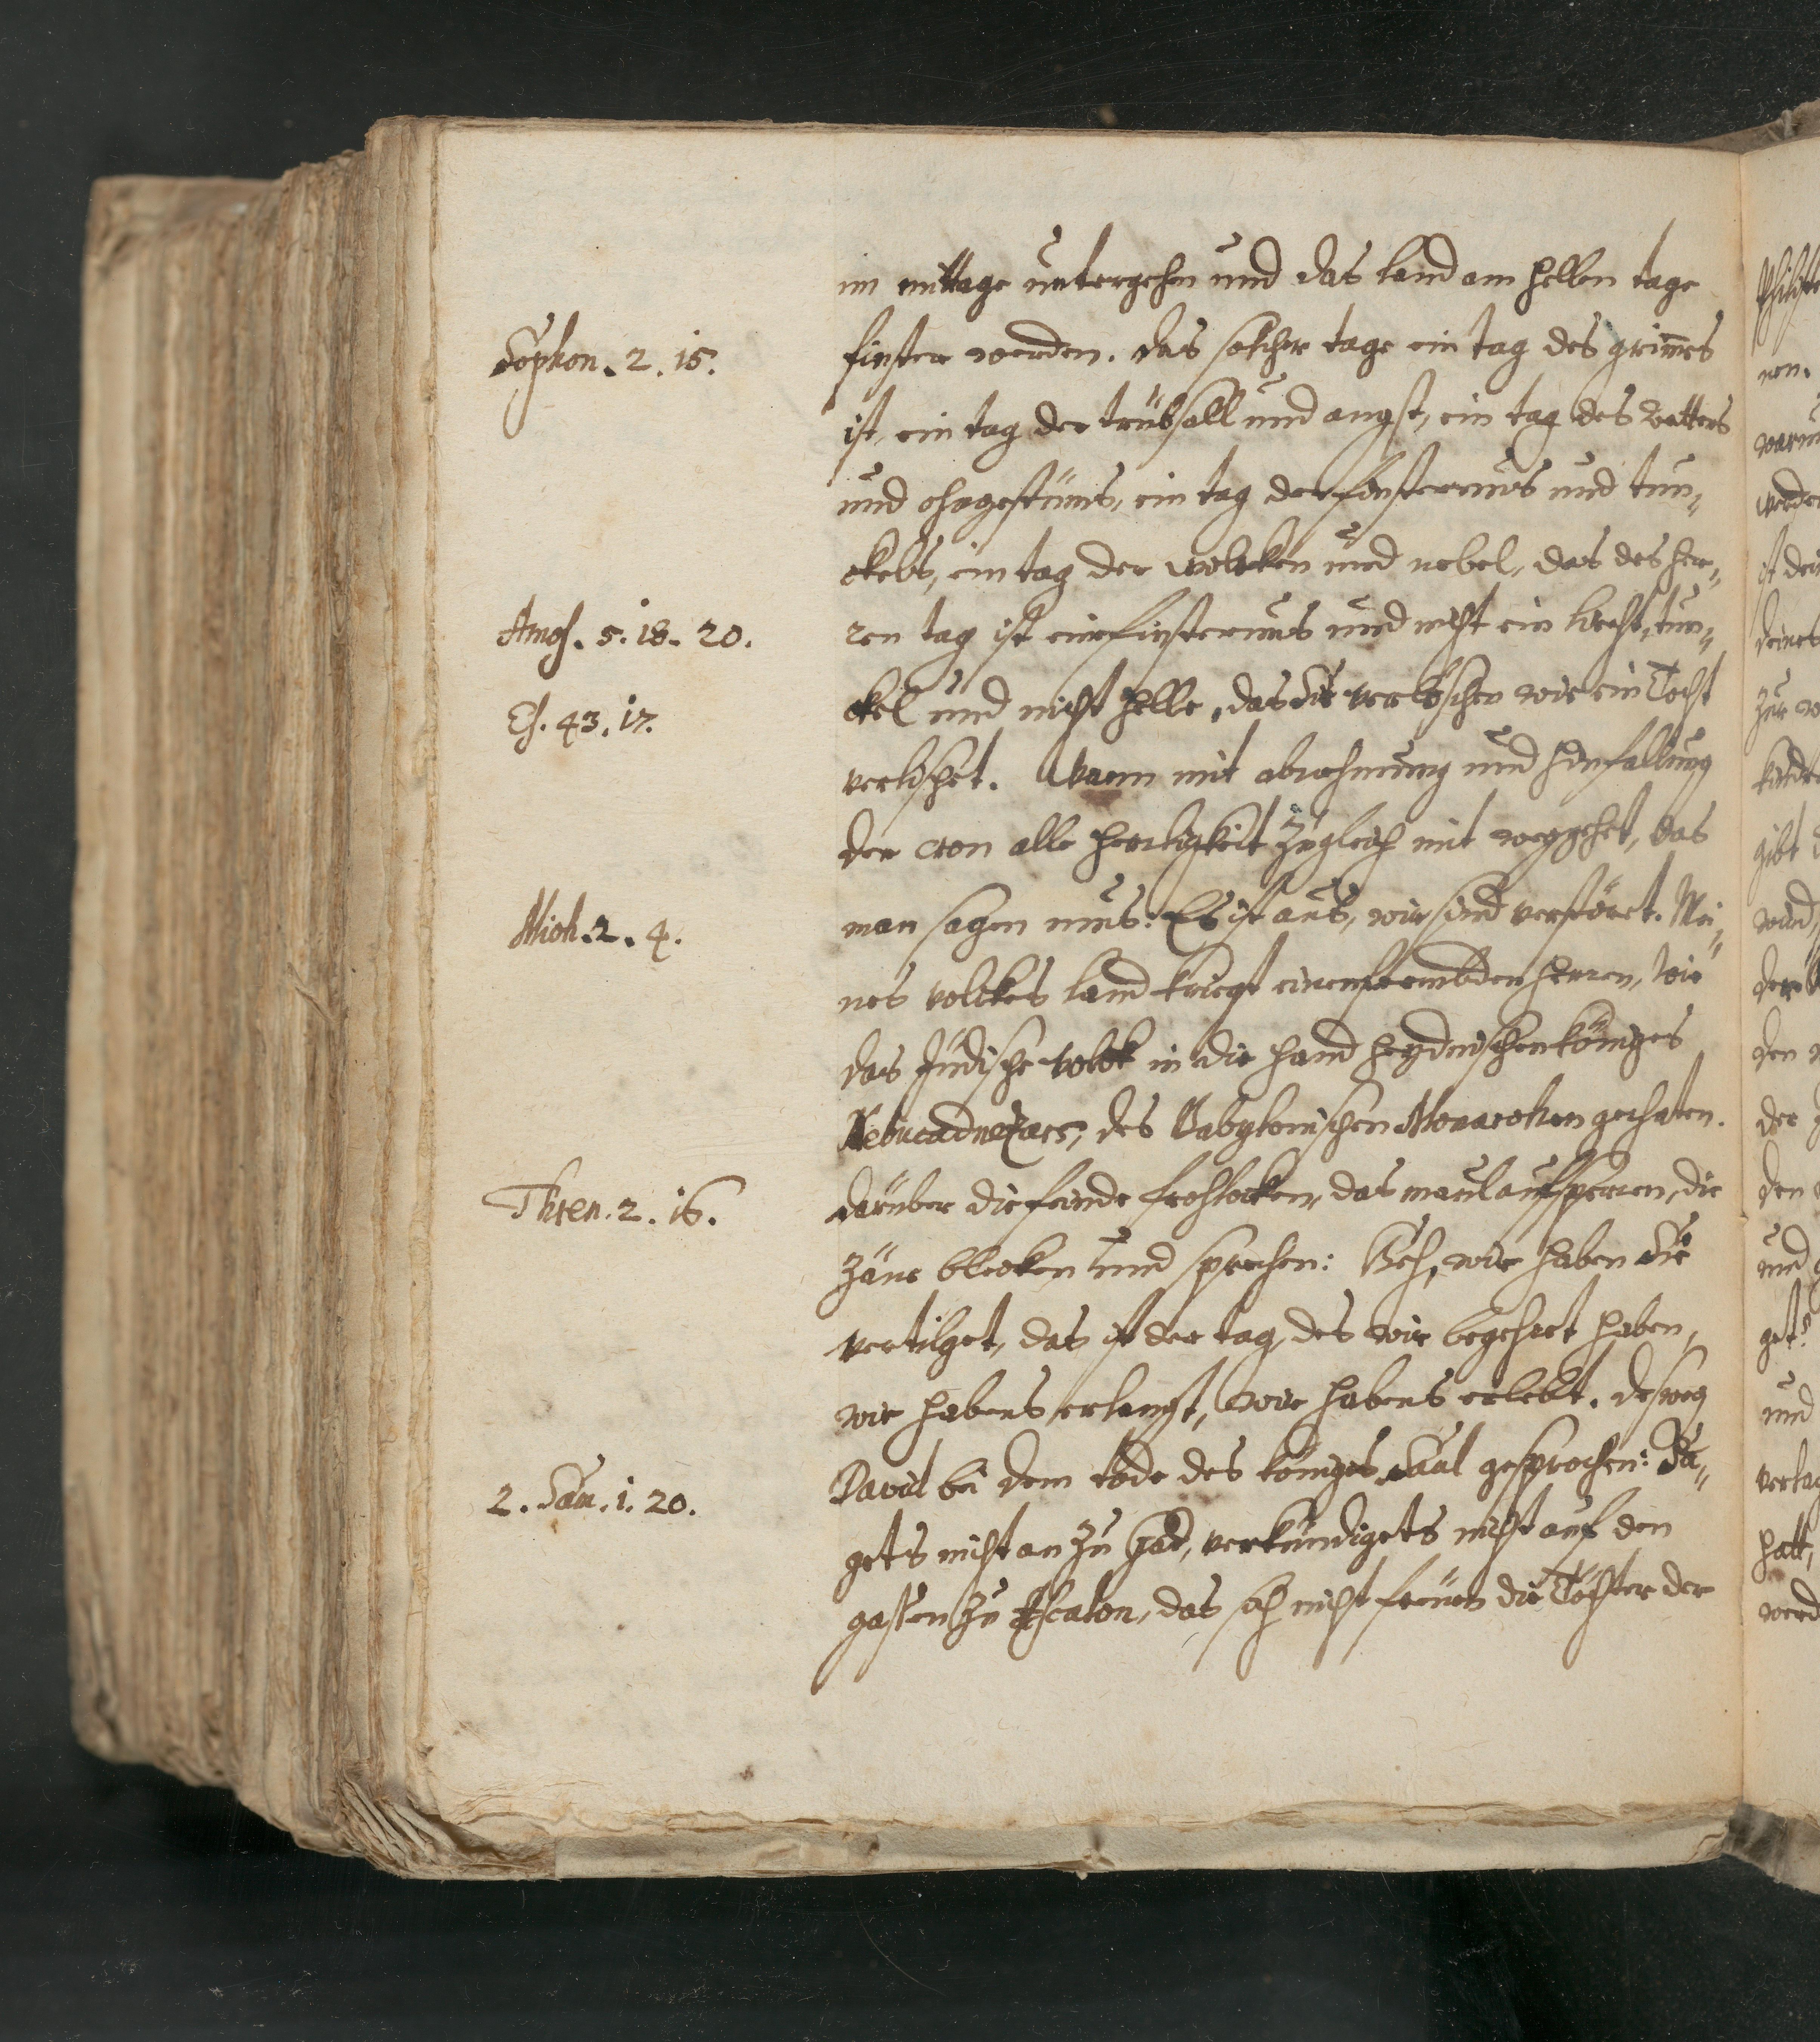 im mittage untergehen und das land am hellen tage
Sophon. 2. 15.
finster werden. das solcher tage ein tag des grim̄es
ist, ein tag der trübsall und angst, ein tag des watters
und ohngestüms, ein tag der finsternüs und tun„
ckels, ein tag der wolcken und nebel, das des her„
Amos. 5. 18. 20.
ren tag ist ein finsternüs und nicht ein liecht, tun„
Es. 43. 17.
ckel und nicht helle, das Sie verleschen wie ein Tocht
verlischet. Wann mit abnehmung und hinfallung
der cron alle herligkeit zugleich mit weggehet, das
Mich. 2. 4.
man sagen mus: Es ist aus, wir sind verstöret. Mei„
nes volckes land kriegt einen frembden herren, wie
das Jüdische volck in die hand heydnischen königes
Nebucadnezars, des Babylonischen Monarchen gerhaten.
Thren. 2. 16.
darüber die feinde frohlocken, das maul aufsperren, die
Zäne blecken und sprechen: Heh, wir haben Sie
vertilget, das ist der tag, des wir begehret haben,
wir habens erlangt, wir habens erlebt. desweg
2. Sam. 1. 20.
David bei dem tode des königes Saul gesprochen: Sa„
gets nicht an zu Gad, verkündigets nicht auf den
gassen zu Ascalon, das sich nicht freuen die Töchter der